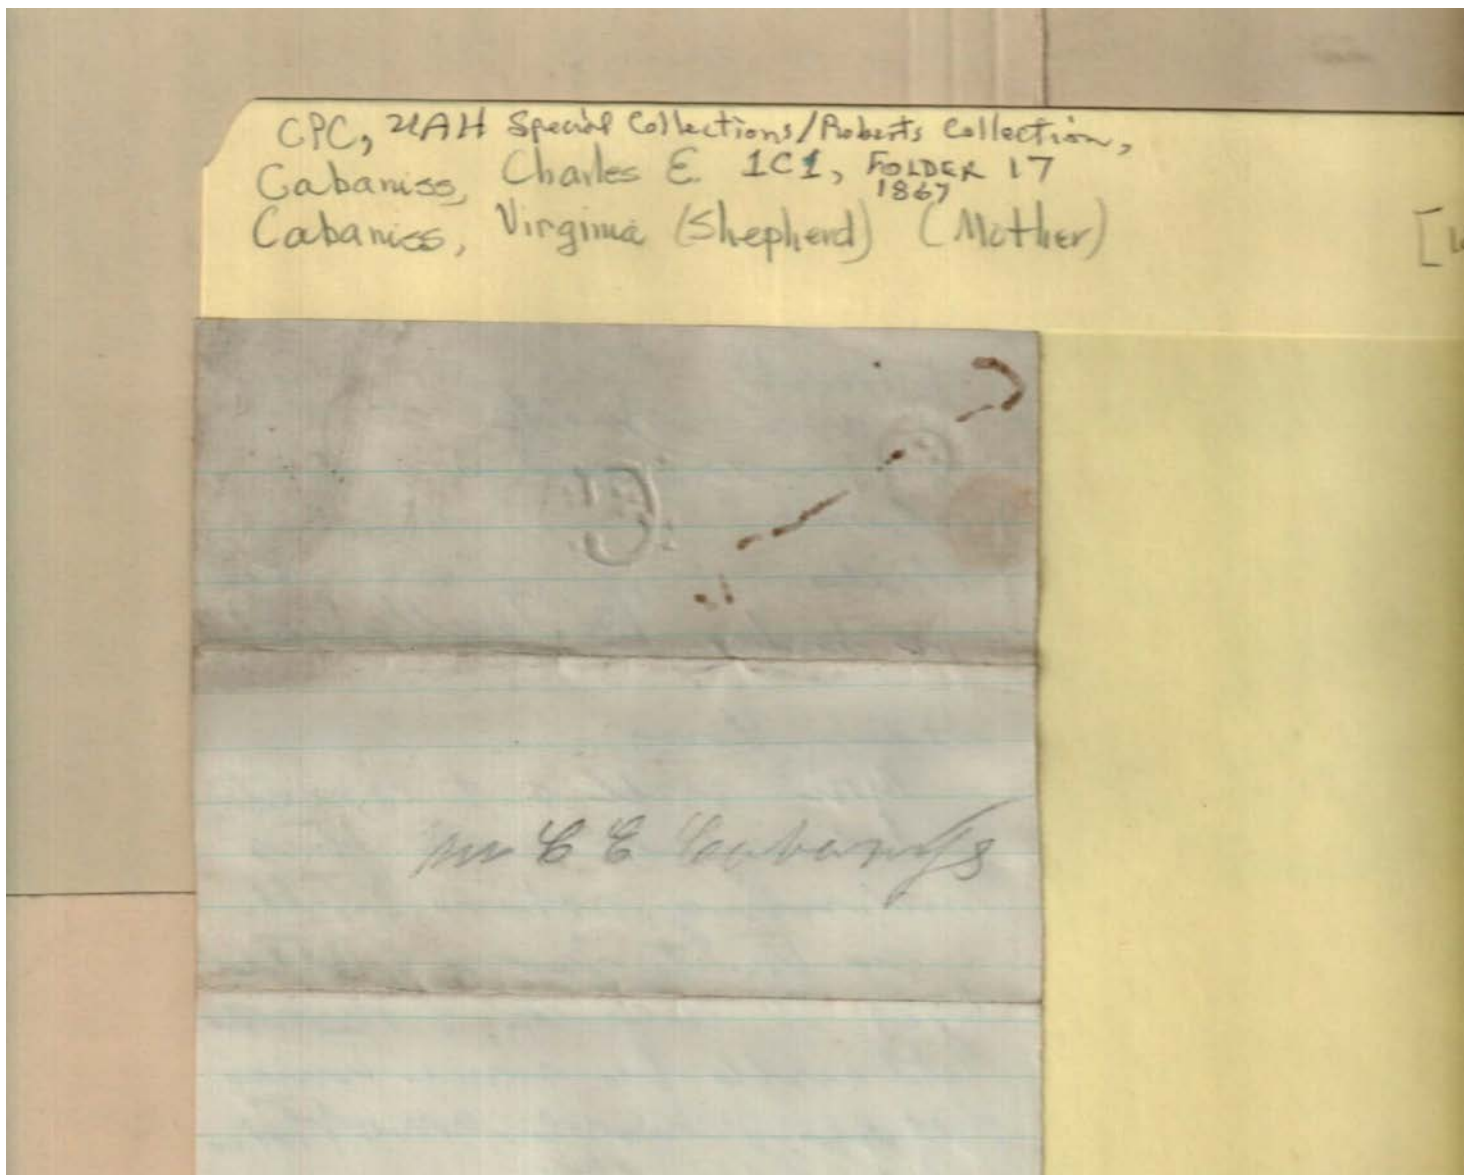 CPC, UAH Special Collections/Roberts Collection,
Cabaniss, Charles E. 1C1, FOLDER 17
1867
Cabaniss, Virginia (Shepherd) (Mother)
[
Mr C E Cabaniss